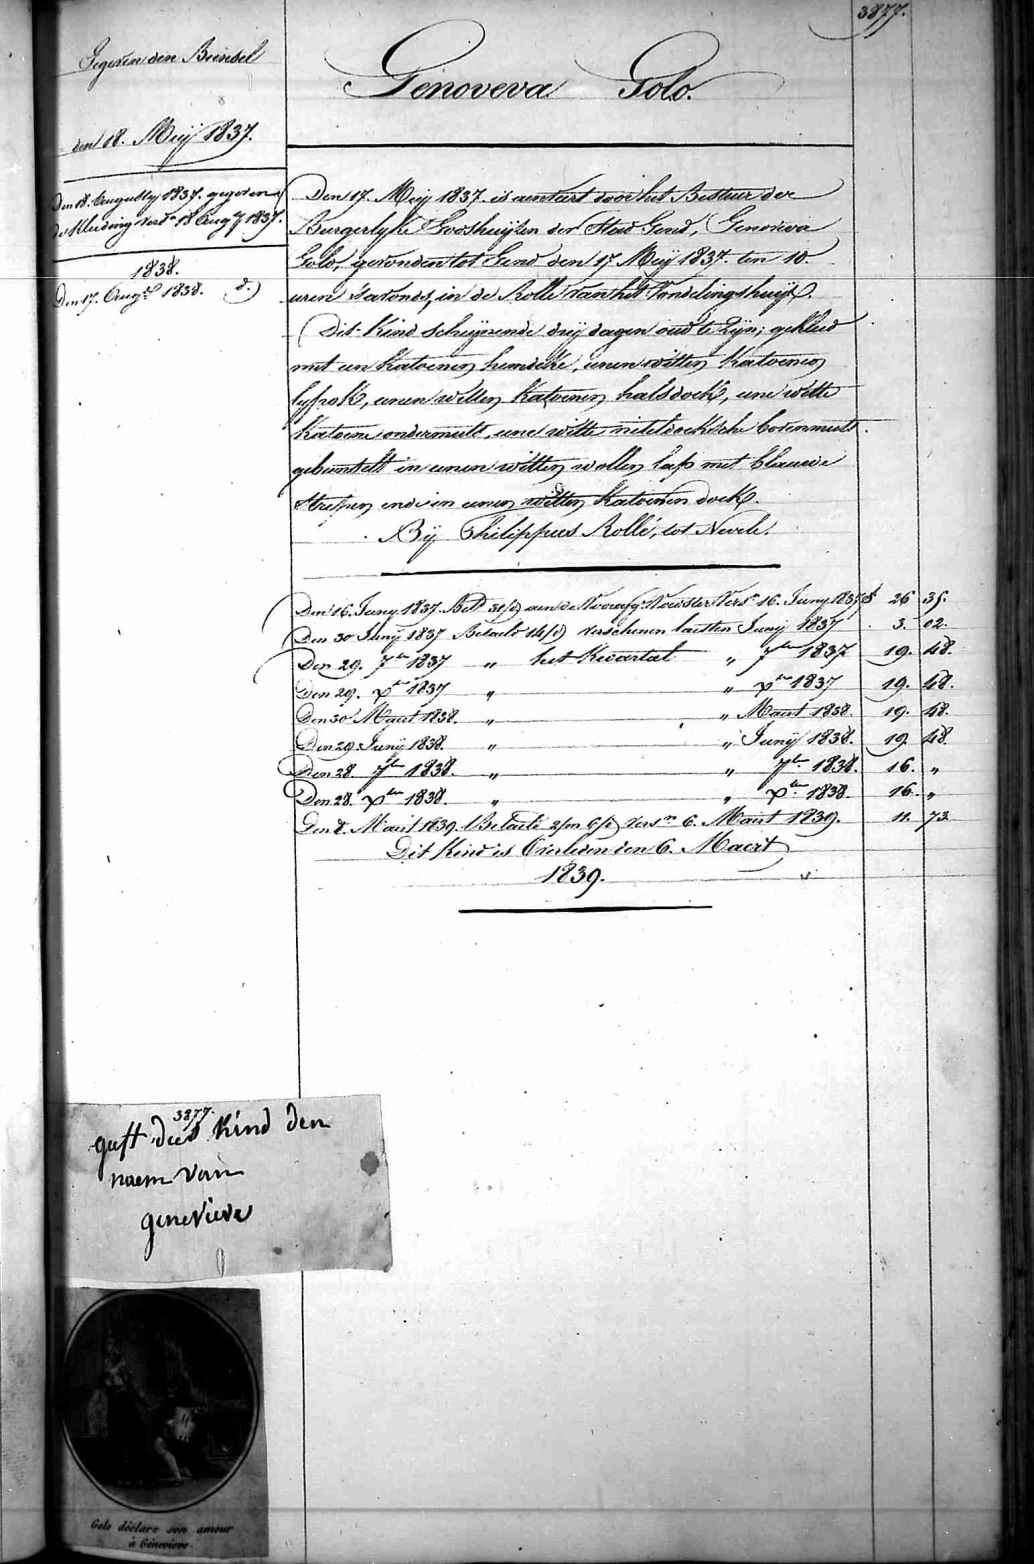 3877.
Gegeven den Bundel
den 18. Meij 1837.
Den 18. Augusty 1837. gegeven
de Kleeding vers. 18 Aug. 1837.
1838.
Den 17. Aug. 1838. d.
Genoveva Golo.
Den 17. Meij 1837. is aenveert door het Bestuur der
Burgerlyke Godshuijzen der Stad Gend, Genoveva
Golo, gevonden tot Gend den 17 Meij 1837. ten 10
uren s'avonds, in de Rolle van het Vondelingshuijs.
Dit Kind scheijnende drij dagen oud te zijn; gekleed
met een katoenen hemdeke, eenen witten katoenen
lyfrok, eenen witten katoenen halsdoek, eene witte
katoene ondermuts, eene witte neteldoeksche bovenmuts
gebunselt in eenen witten wollen lap met blauwe
strepen ende in eenen witten katoenen doek.
Bij Philippus Rollé, tot Nevele.
Den 16. Juny 1837. Bet. 31/d aen de Voorg. Voedster Vers. 16. Juny 1837 f 26 35.
Den 30 Junij 1837 Betaelt 14/d verschenen laetsten Junij 1837 3. 02.
Den 29. 7ber 1837 „ het Kwartael „ 7ber 1837 19. 48.
Den 29. Xber 1837 „ „ Xber 1837 19. 48.
Den 30 Maert 1838. „ „ Maert 1838. 19. 48.
Den 29. Junij 1838. „ „ Junij 1838. 19. 48.
Den 28. 7ber 1838. „ „ 7ber 1838. 16. „
Den 28. Xber 1838. „ „ Xber 1838. 16. „
Den 8. Maert 1839. Betaelt 2/m 6/d vers. 6. Maert 1839. 11. 73.
Dit Kind is Overleden den 6. Maert
1839.
3877.
geeft dees kind den
naem van
genevieve
Golo déclare son amour
à Géneviève.